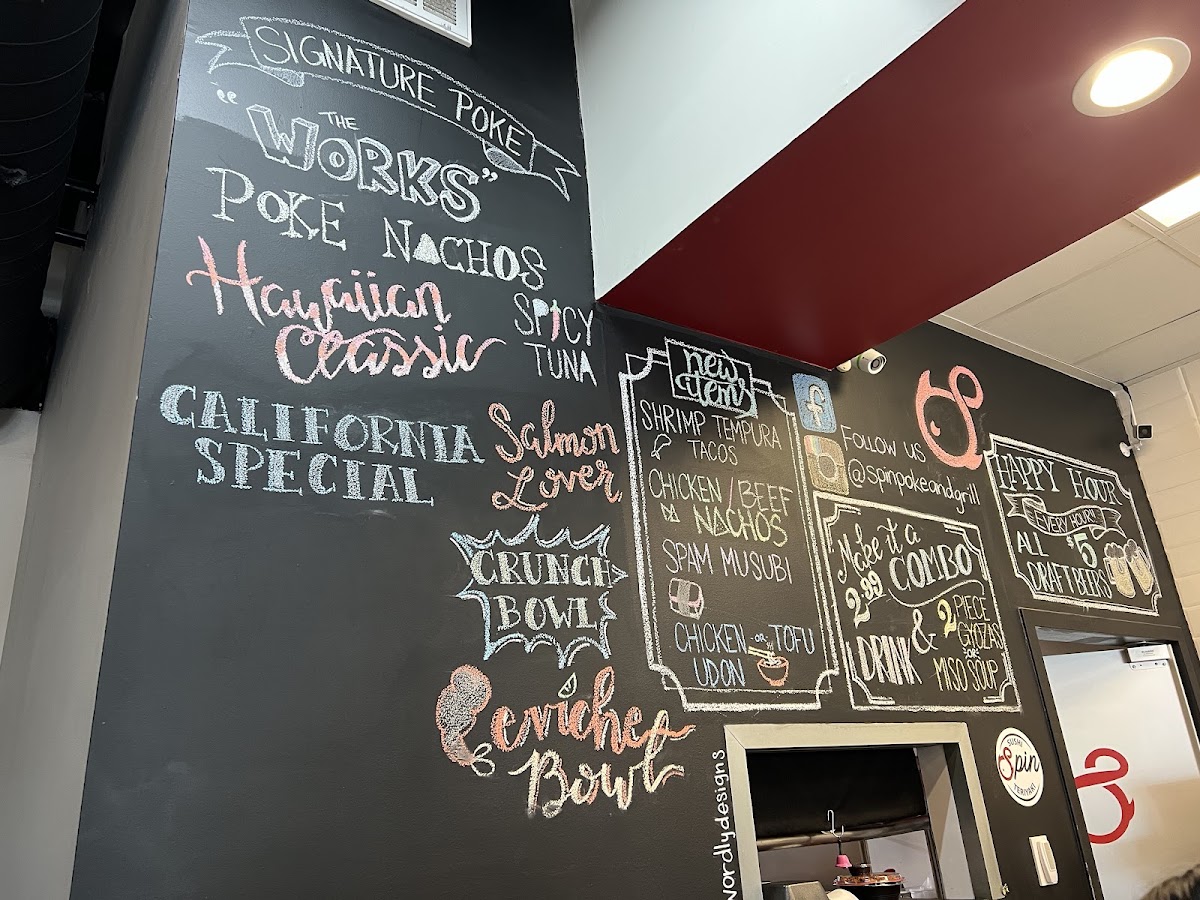 SIGNATURE POKE
"THE WORKS"
POKE NACHOS
Hawaiian
Classic
SPICY
TUNA
CALIFORNIA
SPECIAL
Salmon
Lover
CRUNCH
BOWL
Ceviche
Bowl
new
items
SHRIMP TEMPURA
TACOS
CHICKEN/BEEF
NACHOS
SPAM MUSUBI
CHICKEN OR TOFU
UDON
f
FOLLOW US
@spinpokeandgrill
Make it a
COMBO
2.99
DRINK
& 2 PIECE
GYOZAS
OR
MISO SOUP
HAPPY HOUR
EVERY HOUR!!
ALL $5
DRAFT BEERS
wordlydesigns
SUSHI
Spin
TERIYAKI